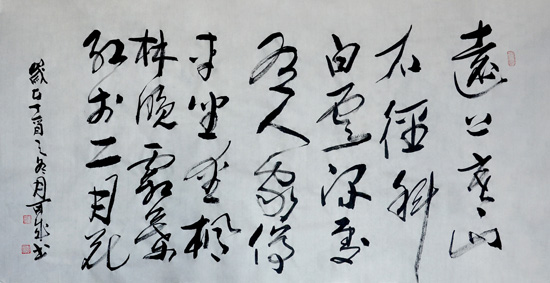 遠上寒山
石徑斜
白雲深處
有人家停
車坐愛楓
林晚霜葉
紅於二月花
歲在丁酉之冬月